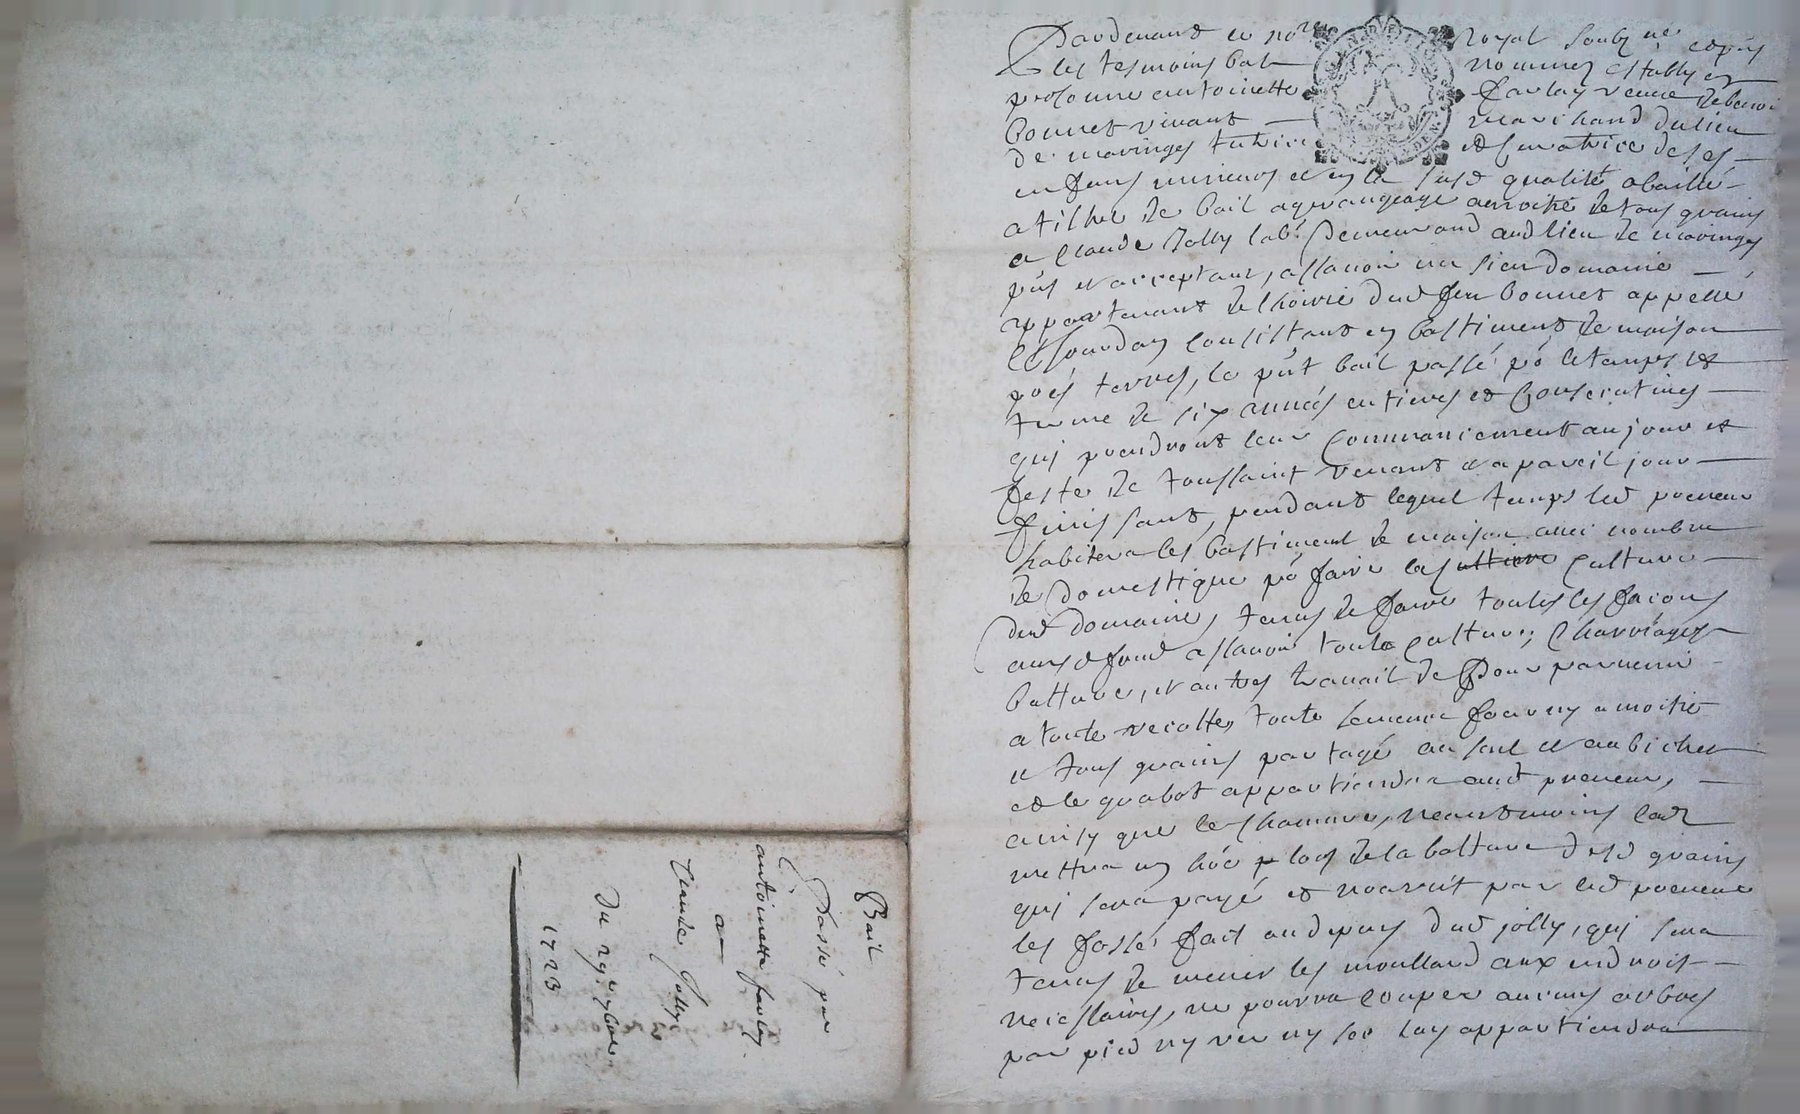 Bail
Passé par
antoinette farlay
a
Claude Jolly
Du 29e 7bre
1723
Pardevant le nore royal soubzné et pñs
les tesmoins bas nommez establye
personne antoinette farlay veuve de benoi
bonnet vivant marchand du lieu
de maringes tutrice et curatrice de ses
enfans mineurs et en la susd qualité a baillé
a tiltre de bail a grangeage a moitié de tous grains
a Claude Jolly labr demeurand aud lieu de maringes
pñs et acceptant, assavoir un sien domaine
appartenant de lhoirie dud feu bonnet appellé
consistant en bastiment de maison
prés terres, le pñt bail passé pr le temps et
terme de six années entieres et consecutives
qui prendront leur commancement au jour et
feste de toussaint venant et a pareil jour
finissant, pendant lequel temps led preneur
habitera les bastiment de maison avec nombre
de domestique pr faire la culture
dud domaine, tenus de faire toutes les façons
ausd fond assavoir toute culture, charroiages
batture, et autres travail de pour parvenir
a toute recolte, toute semence fourny a moitié
et tous grains partagé au sol et au bichet
et le grabot appartiendra aud preneur,
ainsy que le chaume, neantmoins lad
mettra un de la batture desd grains
qui sera payé et nourrit par led preneur
les fossés fait au depens dud jolly, qui sera
tenus de mener les moullard aux endroit
necessaires, ne pourra couper aucuns arbres
par pied ny ver ny sec luy appartiendra